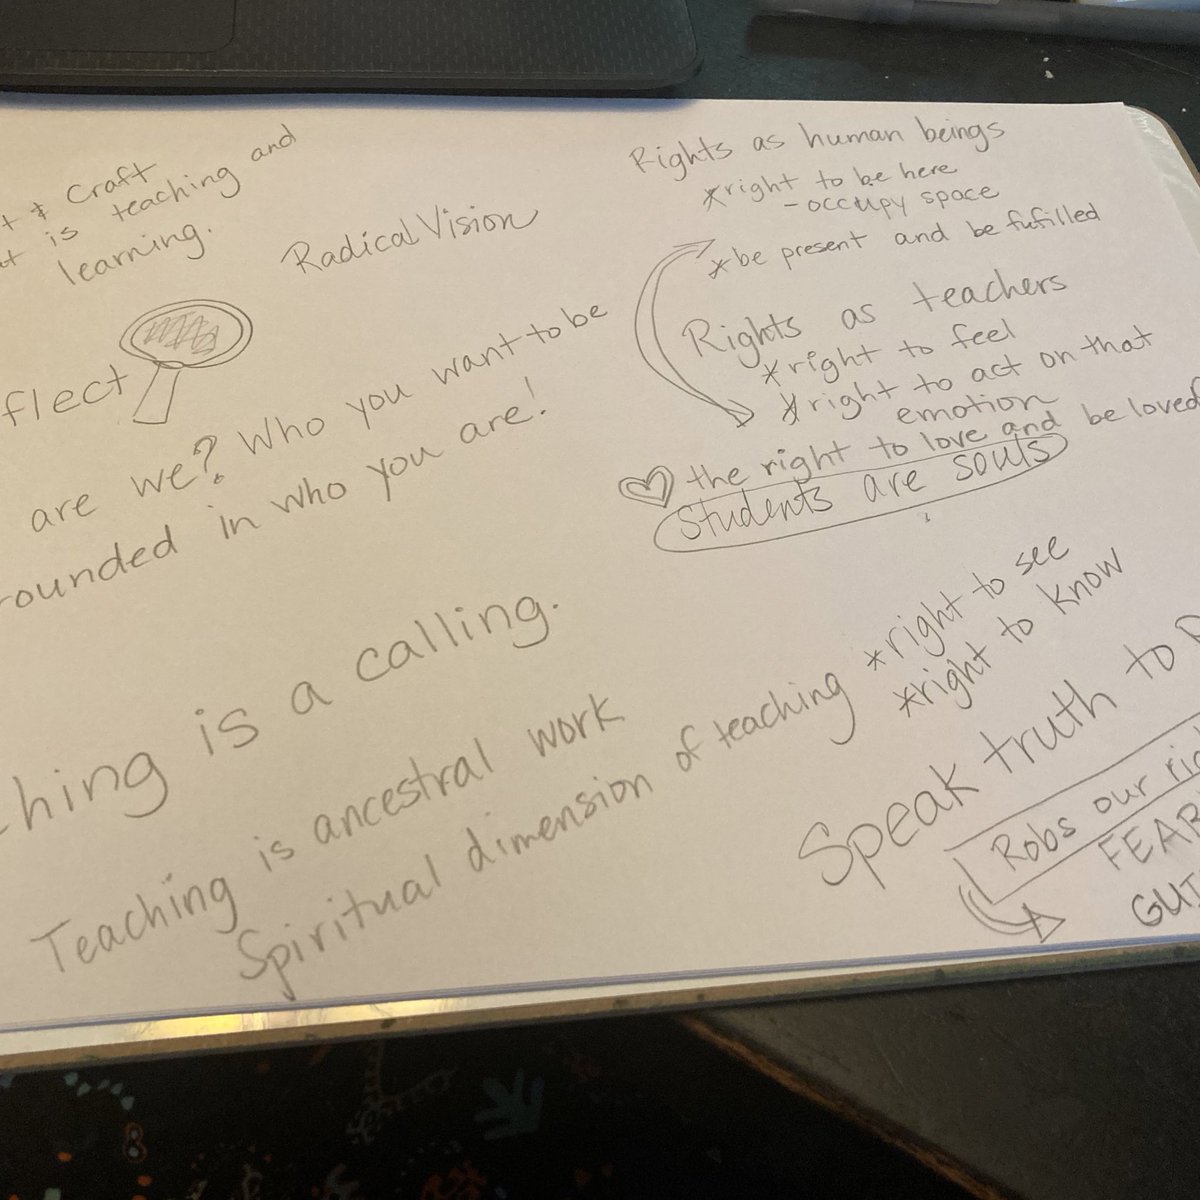 & Craft
is teaching and
learning.
Radical Vision
flect
are we? Who you want to be
rounded in who you are!
hing is a calling.
Teaching is ancestral work
Spiritual dimension of teaching
Rights as human beings
*right to be here
-occupy space
*be present and be fufilled
Rights as teachers
*right to feel
*right to act on that
emotion
the right to love and be loved
Students are souls
*right to see
*right to know
Speak truth to
Robs our rig
FEAR
GUI